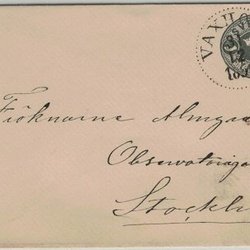 VAXHO
12
Fröknarna Almgre
Observatoriega
Stockh